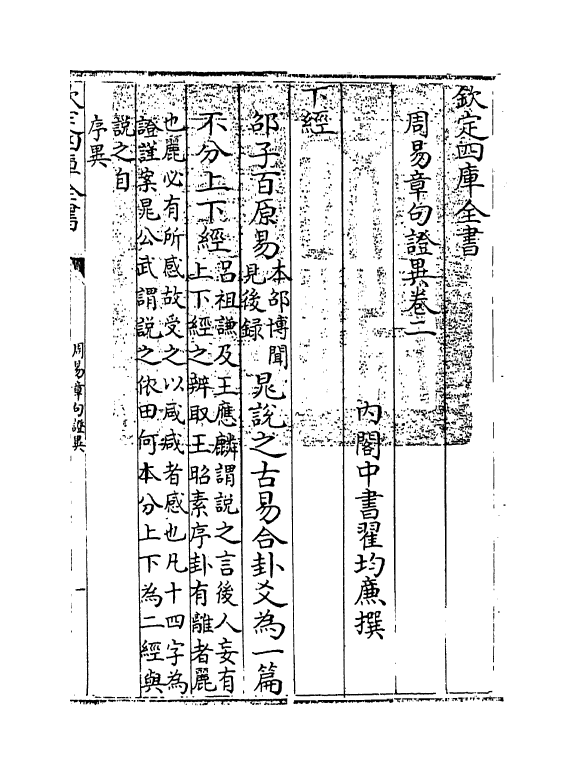 欽定四庫全書
周易章句證異卷二
內閣中書翟均廉撰
下經
邵子百原易本邵博聞見後録晁說之古易合卦爻為一篇
不分上下經呂祖謙及王應麟謂說之言後人妄有
上下經之辨取王昭素序卦有離者麗
也麗必有所感故受之以咸咸者感也凡十四字為
證謹案晁公武謂說之依田何本分上下為二經與
說之自
序異
欽定四庫全書
周易章句證異
一